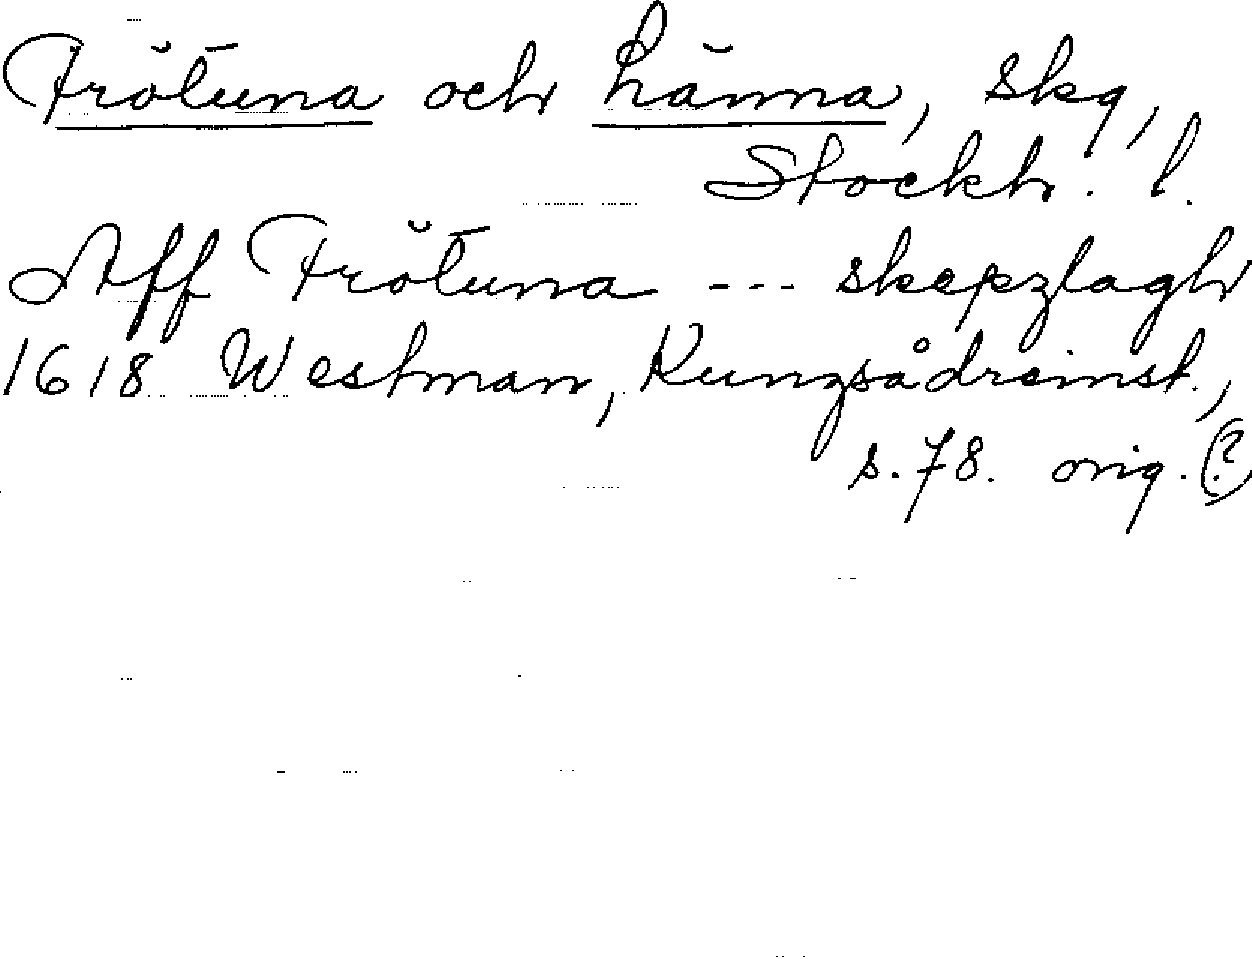 Frötuna och Länna, skg,
Stockh. l.
Aff Frötuna --- skepzlagh
1618 Westman, Kungsådreinst.,
s. 78. orig. (?)